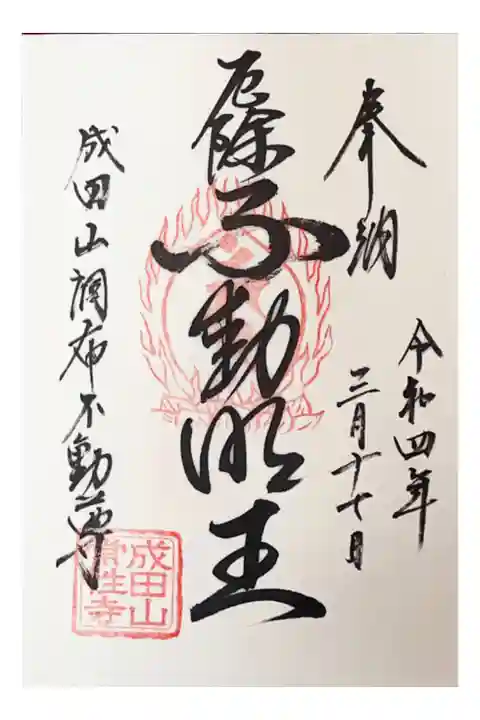 奉納
令和四年
三月十七日
厄除
不動明王
成田山調布不動尊
成田山
常性寺